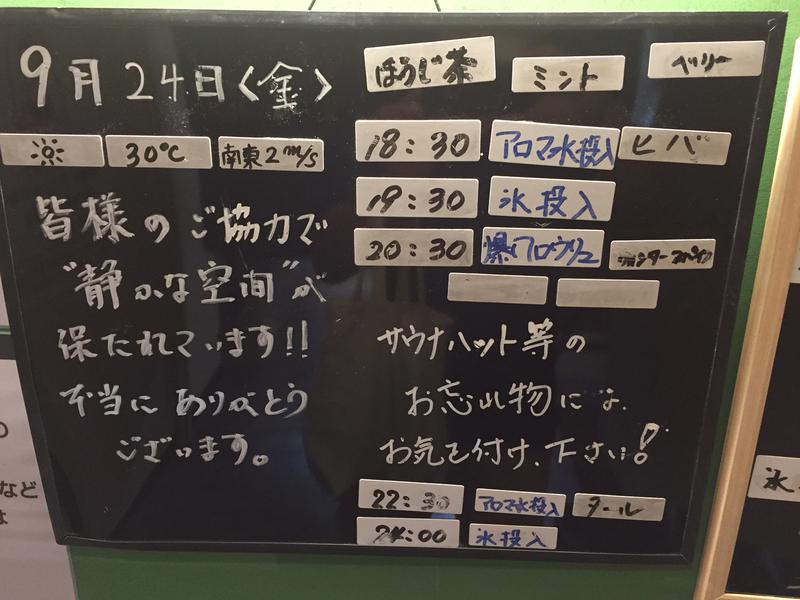 9月24日〈金〉
ほうじ茶 ミント ベリー
30℃ 南東2m/s
皆様のご協力で
"静かな空間"が
保たれています!!
本当にありがとう
ございます。
18:30 アロマ水投入 ヒバ
19:30 氷投入
20:30 爆アロウリュ
サウナハット等の
お忘れ物には、
お気を付け、下さい!
22:30 アロマ水投入 タール
24:00 氷投入
など
氷